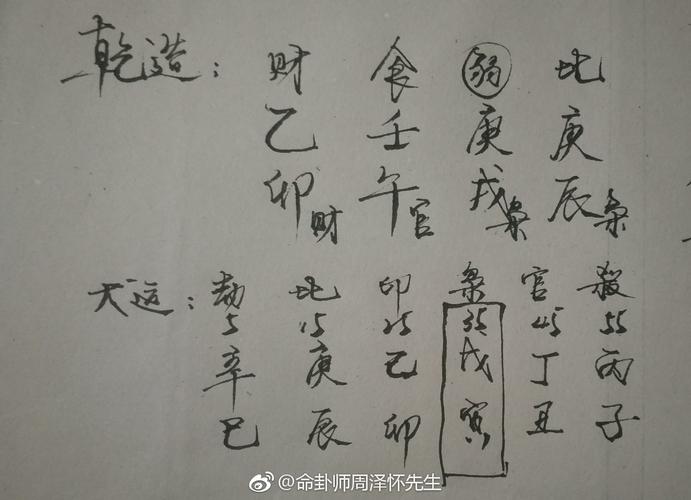 乾造： 财 食 弱 比
乙 壬 庚 庚
卯财 午官 戌枭 辰枭
大运： 劫 比 印 枭 官 殺
5 15 25 35 45 55
辛 庚 己 戊 丁 丙
巳 辰 卯 寅 丑 子
@命卦师周泽怀先生